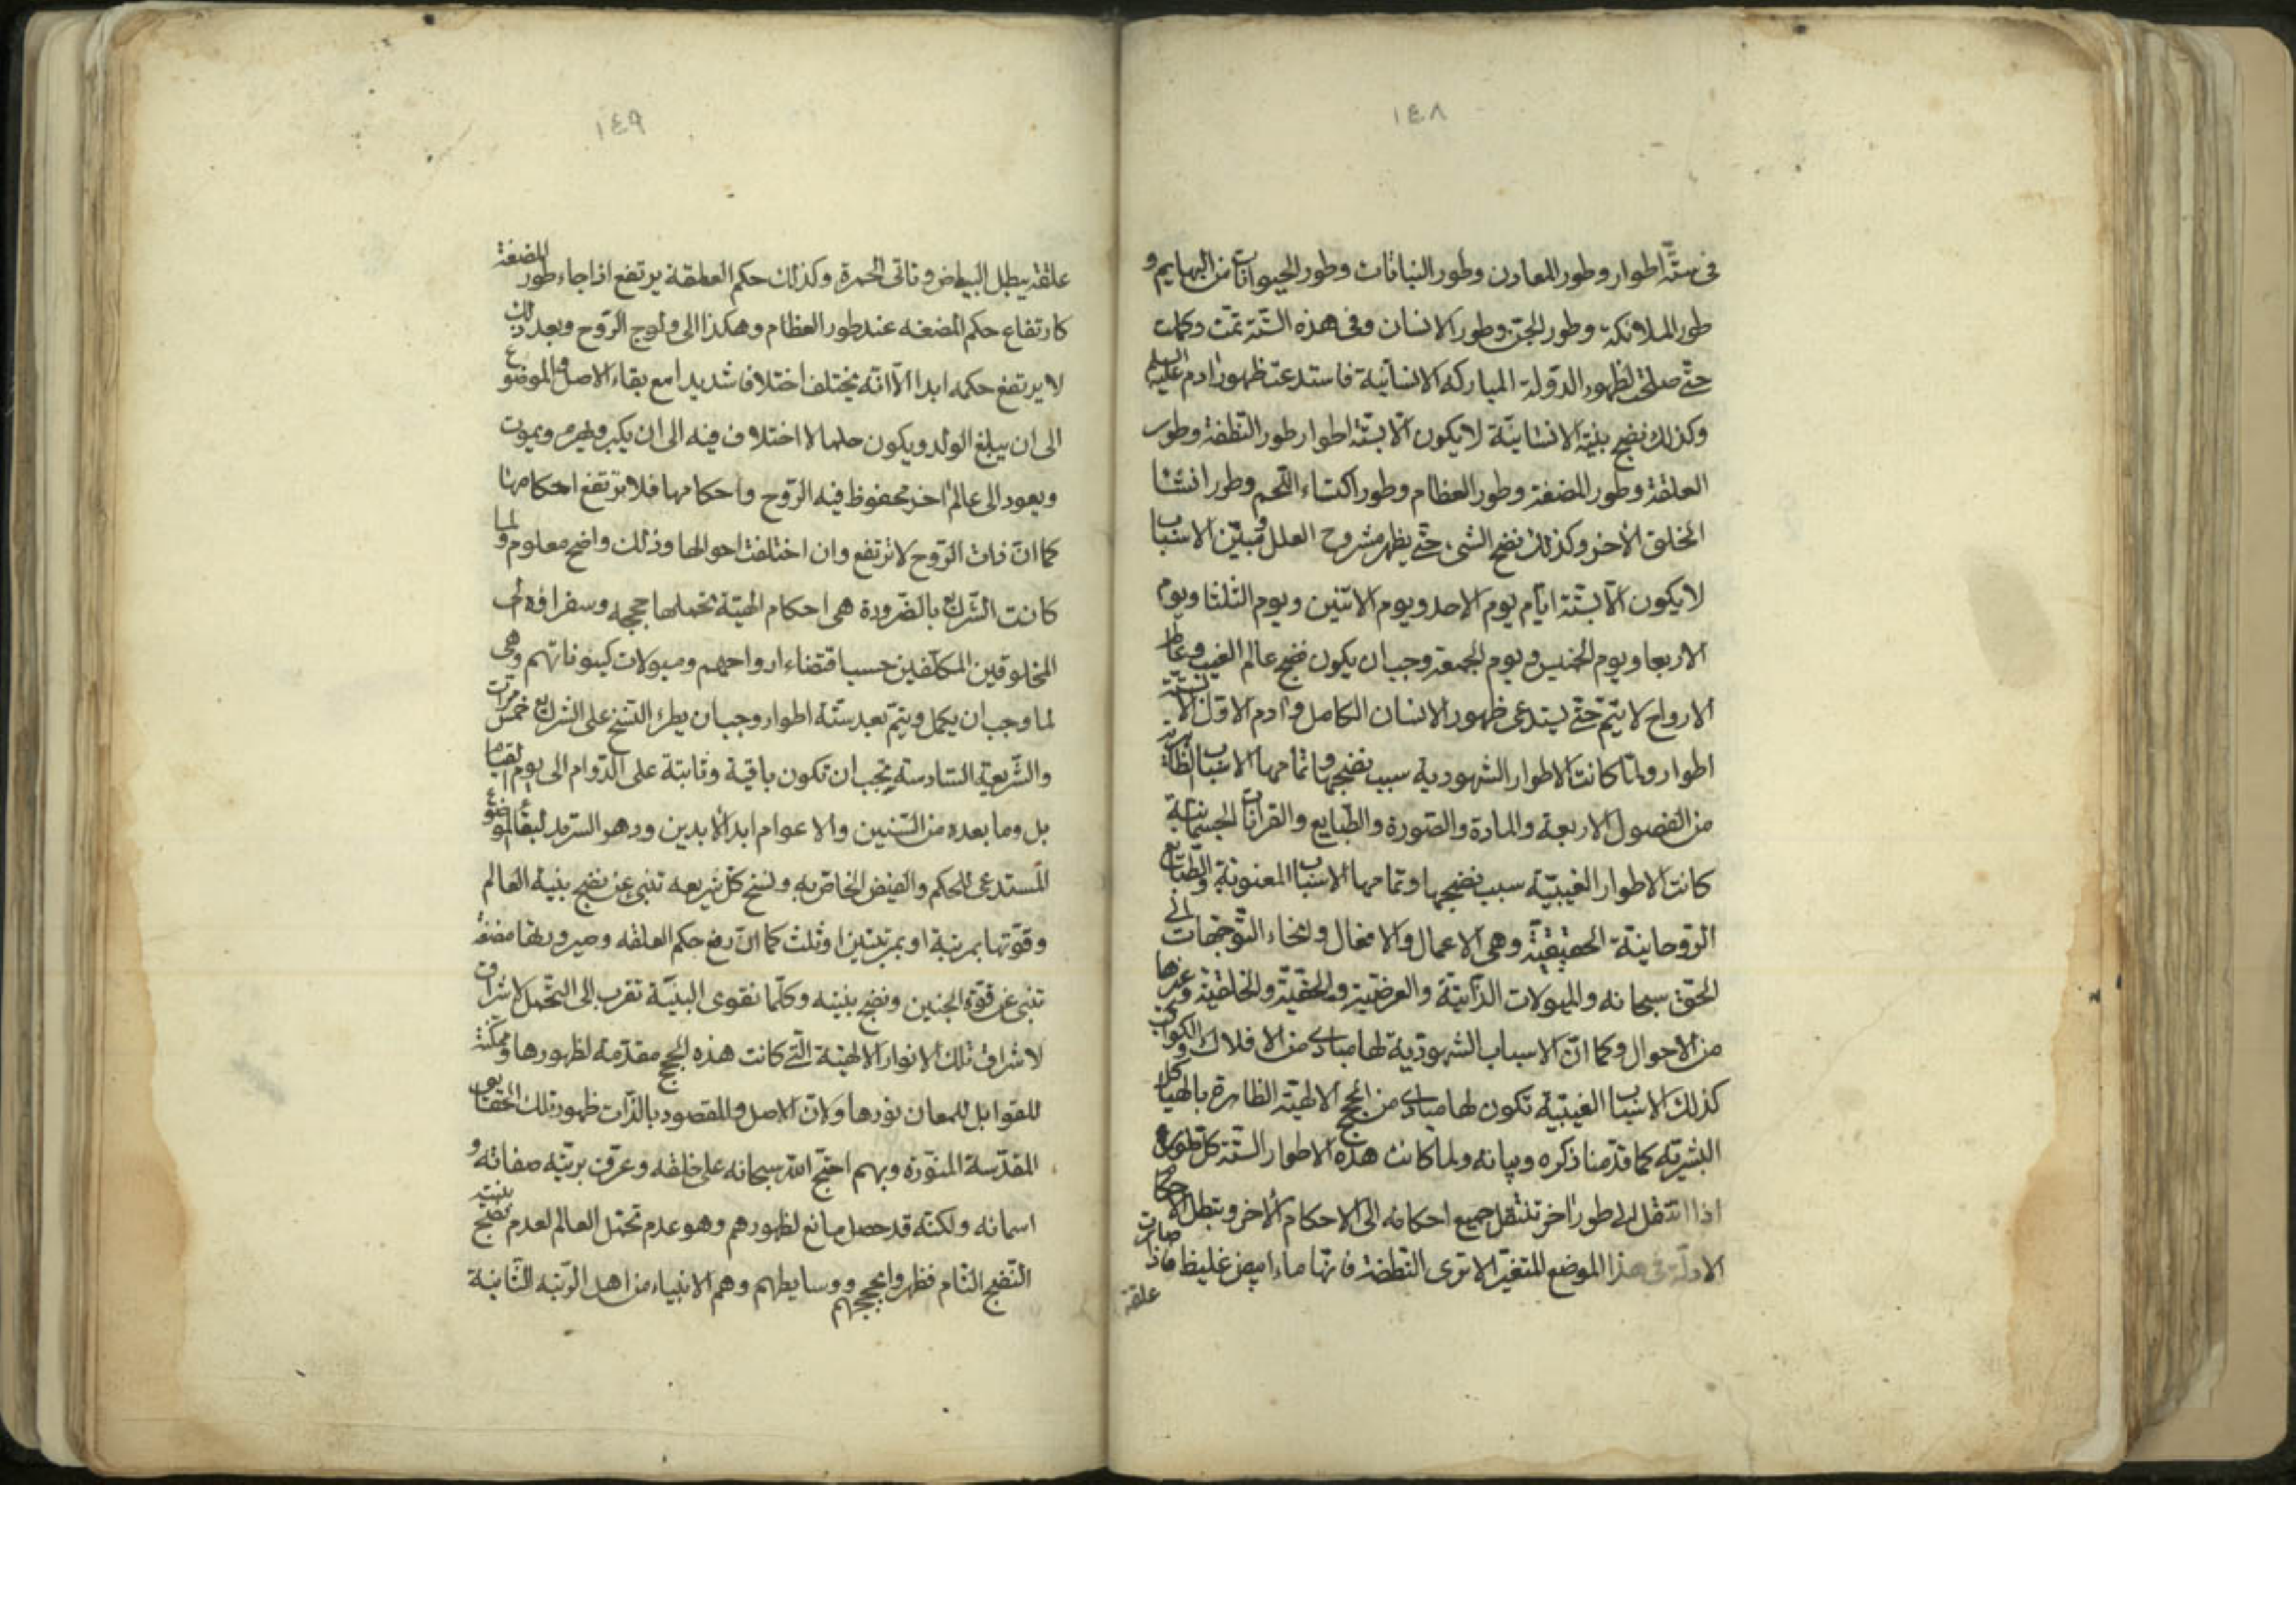 ١٤٨
فى ستّة اطوار وطور المعادن وطور النباتات وطور الحيوانات من البهايم و
طور الملائكة وطور الجنّ وطور الانسان وفى هذه الستّة تمّت وكملت
حتّى صلحت لظهور الدّولة المباركه الانسانيّة فاستدعت ظهور ادم عليه السلم
وكذلك نضج بنية الانسانيّة لا يكون الّا بستّة اطوار طور النّطفة وطور
العلقة وطور المضغة وطور العظام وطور اكتساء اللّحم وطور انشاء
الخلق الأخر وكذلك نضج الشئ حتّى يظهر مشروح العلل ومبيّن الاسباب
لا يكون الّا بستّة ايّام يوم الاحد ويوم الاثنين ويوم الثلثا ويوم
الاربعا ويوم الخميس ويوم الجمعة وجب ان يكون نضج عالم الغيب وعالم
الارواح لا يتمّ حتّى يستدعى ظهور الانسان الكامل وادم الاوّل الّا بستّة
اطوار ولمّا كانت الاطوار الشهوديه سبب نضجها وتمامها الاسباب الظاهرية
من الفصول الاربعة والمادة والصّورة والطّبايع والقرانات الجسمانيّة
كانت الاطوار الغيبيّة سبب نضجها وتمامها الاسباب المعنوية والطبايع
الرّوحانيّة الحقيقيّة وهى الاعمال والافعال وانحاء التّوجّهات الى
الحقّ سبحانه والميولات الذّاتيّة والعرضيّة والحقّيّة والخلقيّة وغيرها
من الاحوال وكما انّ الاسباب الشهوديّة لها مبادى من الافلاك والكواكب
كذلك الاسباب الغيبيّة تكون لها مبادى من الحجج الالهيّة الظاهرة بالهياكل
البشريّه كما قدّمنا ذكره وبيانه ولما كانت هذه الاطوار الستّة كلّ طور
اذا انتقل الى طور اخر تنتقل جميع احكامه الى الاحكام الأخر وتبطل الاحكام
الاولة فى هذا الموضع المتغيّر الا ترى النّطفة فانّها ماء ابيض غليظ فاذا صارت
علقة
١٤٩
علقة يبطل البياض وتاتى الحمرة وكذلك حكم العلقة يرتفع اذا جاء طور المضغة
كارتفاع حكم المضغه عند طور العظام وهكذا الى ولوج الرّوح وبعد ذلك
لا يرتفع حكمه ابدا الّا انّه يختلف اختلافا شديدا مع بقاء الاصل والموضوع
الى ان يبلغ الولد ويكون حلما لا اختلاف فيه الى ان يكبر ويهرم ويموت
ويعود الى عالم اخر محفوظ فيه الرّوح واحكامها فلا ترتفع احكامها
كما انّ ذات الرّوح لا ترتفع وان اختلفت احوالها وذلك واضح معلوم ولما
كانت الشّرايع بالضّرورة هى احكام الهيّة تحملها حججه وسفراؤه الى
المخلوقين المكلّفين حسب اقتضاء ارواحهم وميولات كينوناتهم وهى
لما وجب ان يكمل ويتمّ بعد ستّة اطوار وجب ان يطرء النّسخ على الشرايع خمس مرّات
والشّريعة السّادسة يجب ان تكون باقية وثابتة على الدّوام الى يوم القيامة
بل وما بعده من السّنين والاعوام ابد الأبدين ودهر السّرمد لبقاء الموضوع
المستدعى للحكم والفيض الخاصّ به ونسخ كلّ شريعه تنبئ عن نضج بنية العالم
وقوّتها بمرتبة او بمرتبتين او ثلث كما انّ رفع حكم العلقه وصيرورتها مضغة
تنبئ عن قوّة الجنين ونضج بنيته وكلّما تقوى البنيّة تقرب الى التحّمل لاشراق
لاشراق تلك الانوار الالهيّة الّتى كانت هذه الحجج مقدّمة لظهورها وممكّنة
للقوابل للمعان نورها ولانّ الاصل والمقصود بالذّات ظهور تلك الحقايق
المقدّسة المنوّرة وبهم احتجّ الله سبحانه على خلقه وعرّف بريّته صفاته و
اسمائه ولكنّه قد حصل مانع لظهورهم وهو عدم تحمّل العالم لعدم نضج بنيته
النّضج التّام فظهروا بحججهم ووسايطهم وهم الانبياء من اهل الرّتبة الثّانية